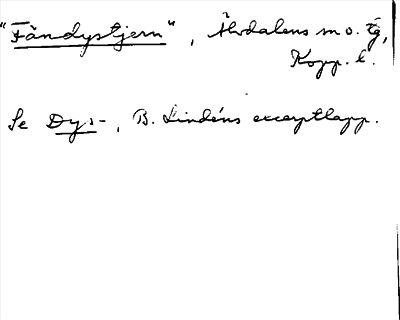 "Fändystjern", Älvdalens m o. tg,
Kopp. l.
Se Dys-, B. Lindéns excerptlapp.